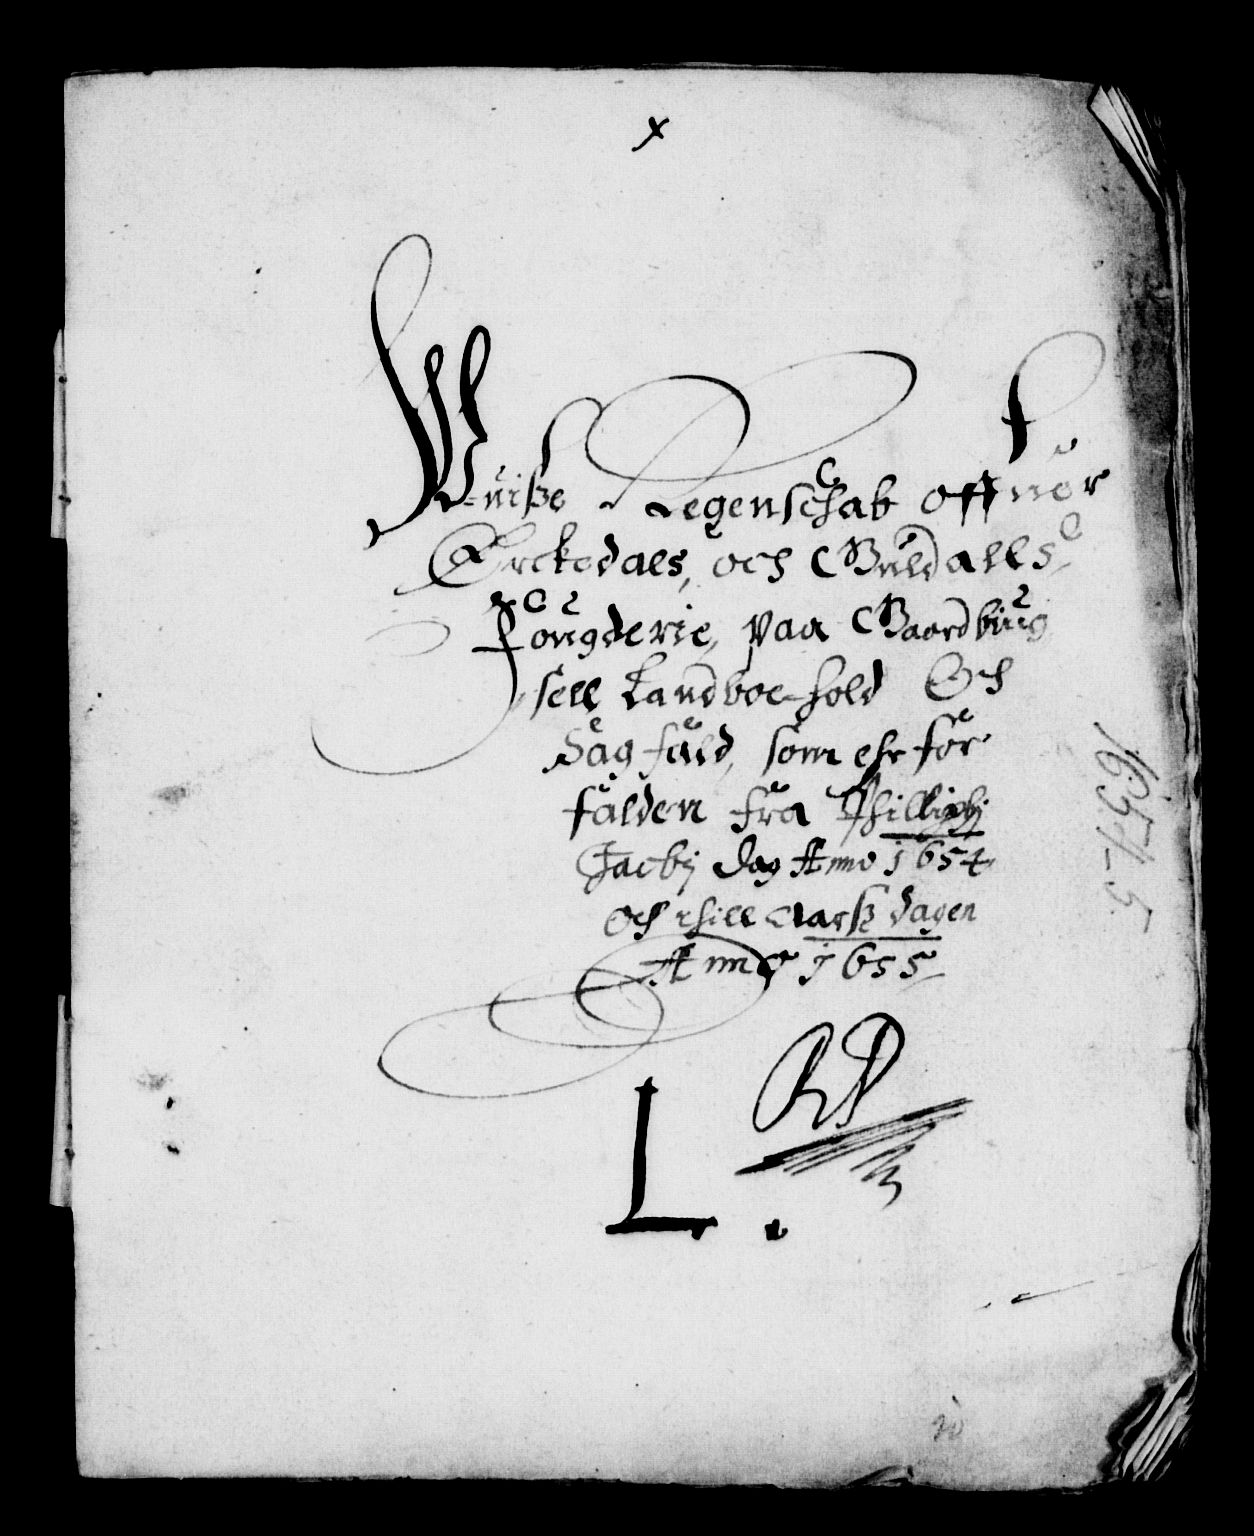 x
Wuisße Regenschab offuer
Orckedaels, och Guldalls
Fougderie, paa Baardbiug
sell Landboe-hold Och
Sagfald, som ehr for
falden fra Phillipij
Jacbij dag Anno 1654
och thill Aarß dagen
Anno 1655
L.
1654-5
10